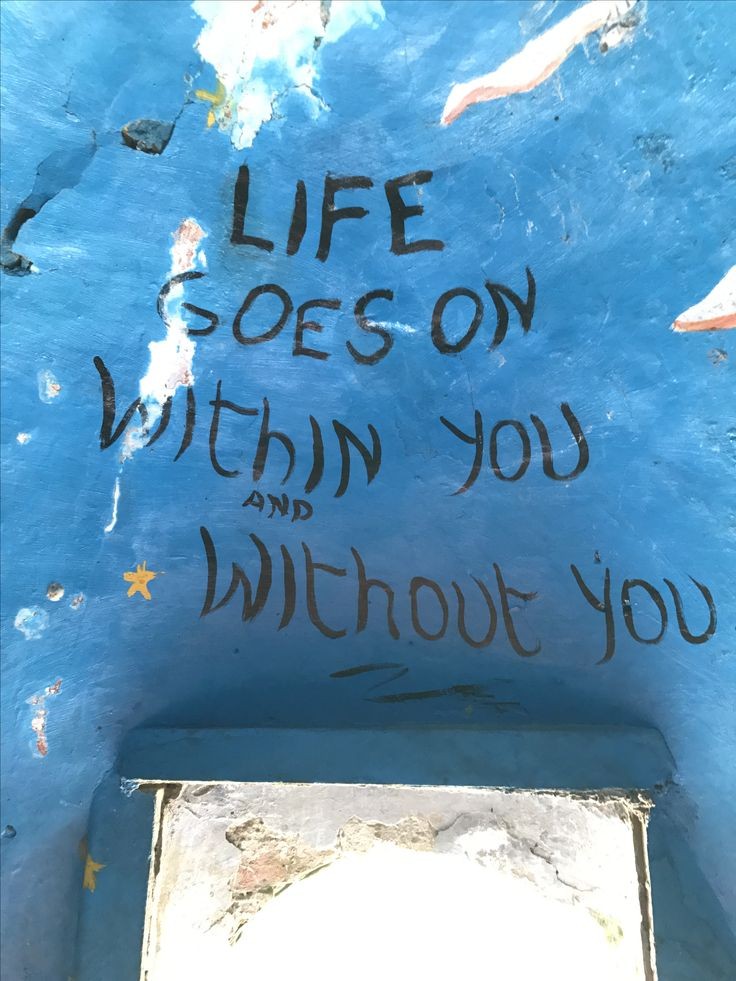 LIFE
GOES ON
WithIN YOU
AND
Without You